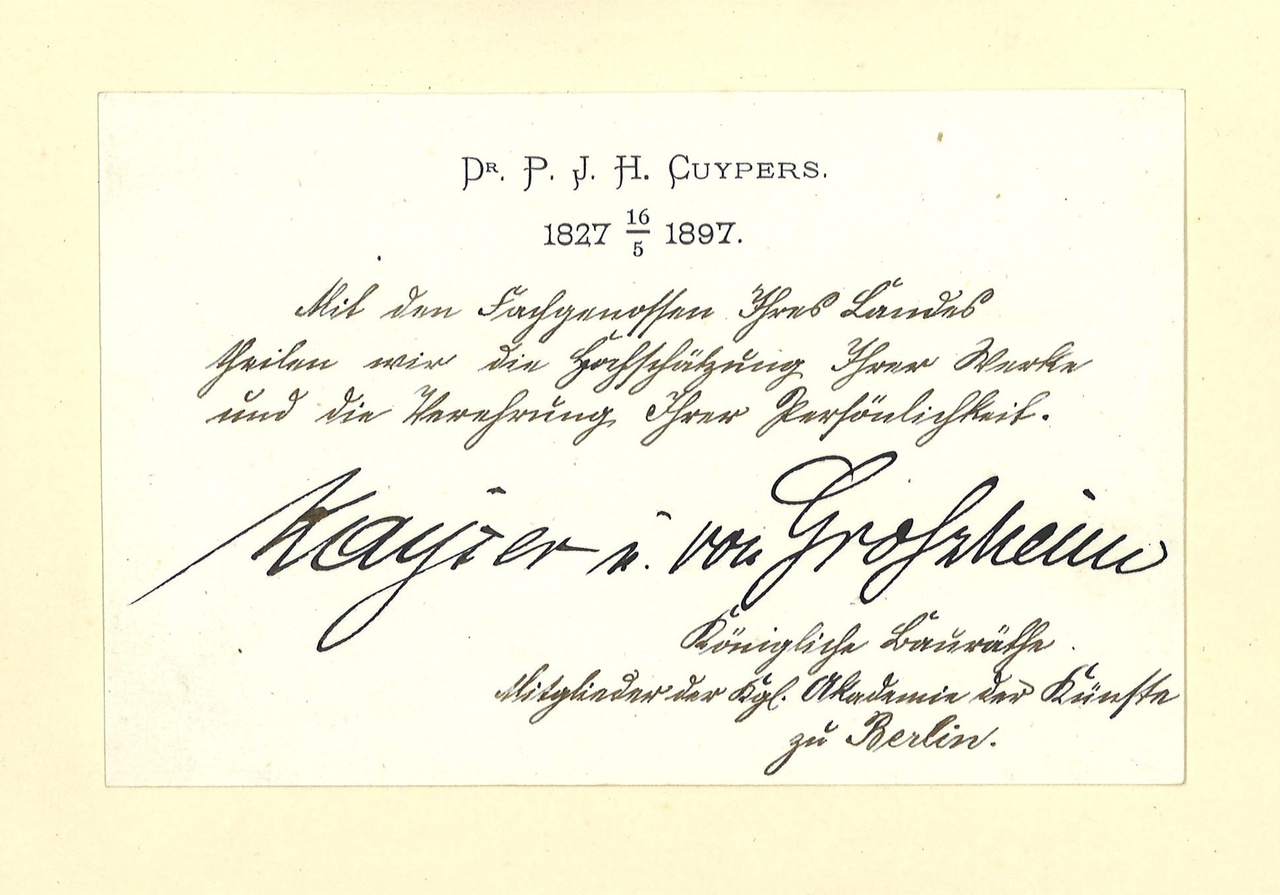 DR. P. J. H. CUYPERS.
1827 16/5 1897.
Mit den Fachgenossen Ihres Landes
theilen wir die Hochschätzung Ihrer Werke
und die Verehrung Ihrer Persönlichkeit.
Kayser u. von Groszheim
Königliche Bauräthe.
Mitglieder der Kgl. Akademie der Künste
zu Berlin.